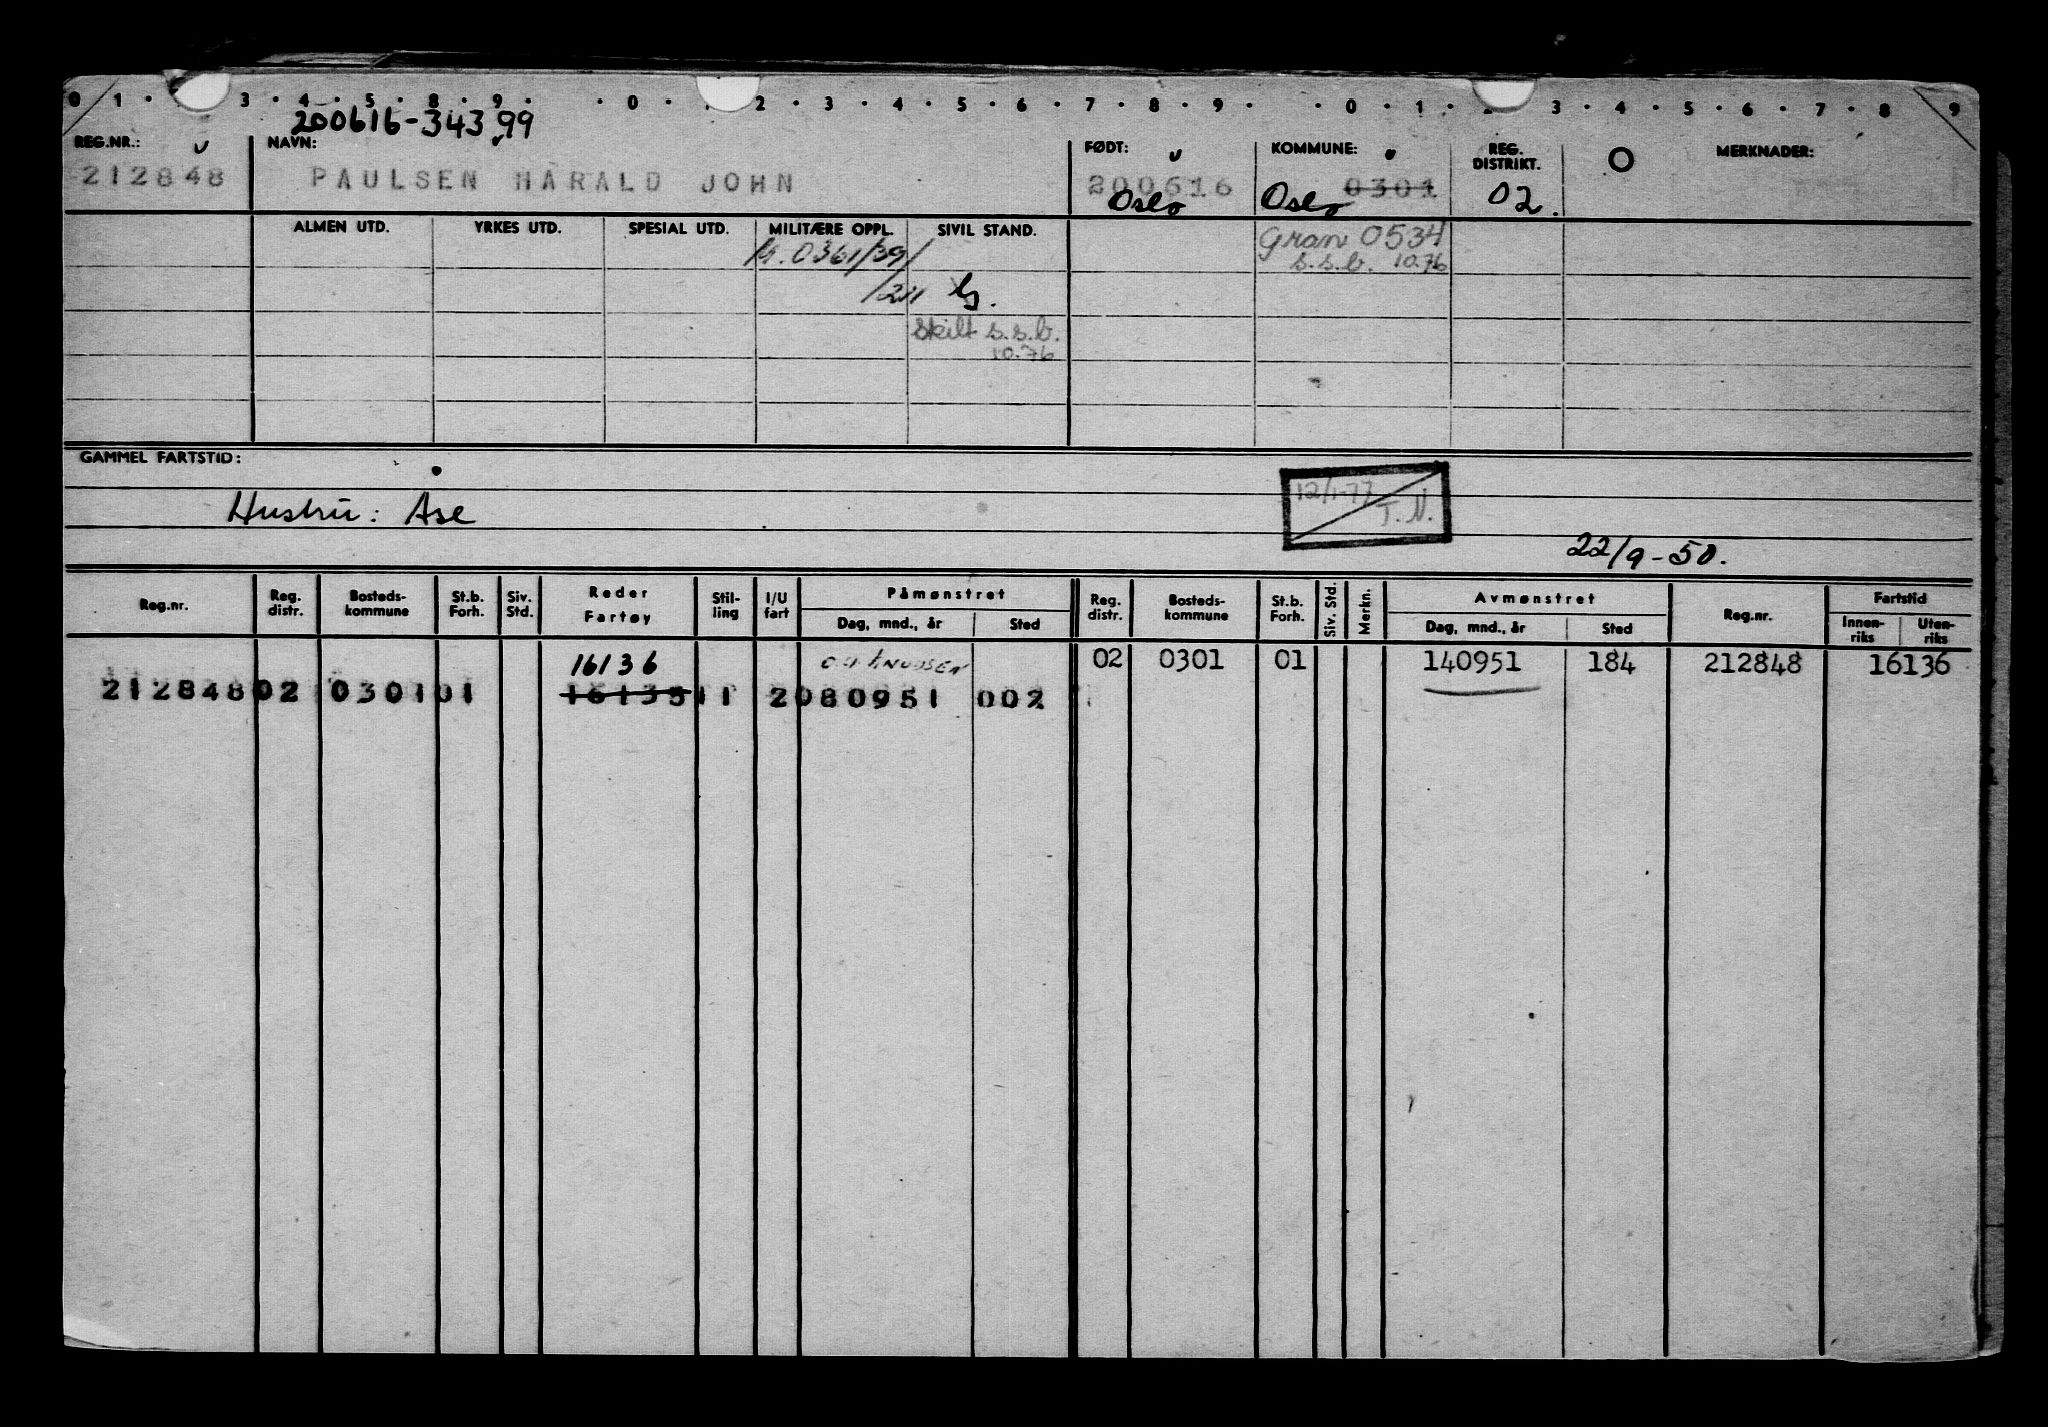 0 1 · 3 · 4 · 5 · 8 · 9 · · 0 · 2 · 3 · 4 · 5 · 6 · 7 · 8 · 9 · · 0 · 1 · 3 · 4 · 5 · 6 · 7 · 8 9
200616-34399
REG.NR.: NAVN: FØDT: KOMMUNE: REG. DISTRIKT. MERKNADER:
212848 PAULSEN HARALD JOHN 200616 Oslo Oslo 0301 02.
ALMEN UTD. YRKES UTD. SPESIAL UTD. MILITÆRE OPPL. SIVIL STAND.
0361/39/ Gran 0534
s.s.b. 10.76
/211 G.
Skilt s.s.b.
10.76
GAMMEL FARTSTID:
12/1-77
T.N.
Hustru: Ase
22/9-50.
Reg.nr. Reg. distr. Bosteds-kommune St.b. Forh. Siv. Std. Reder Fartøy Stil-ling I/U fart Påmønstret Dag, mnd., år Sted Reg. distr. Bosteds-kommune St.b. Forh. Siv. Std. Merkn. Avmønstret Dag, mnd., år Sted Reg.nr. Fartstid Innen-riks Uten-riks
16136 KNUDSEN 02 0301 01 140951 184 212848 16136
212848 02 0301 01 16135 11 2 080951 002